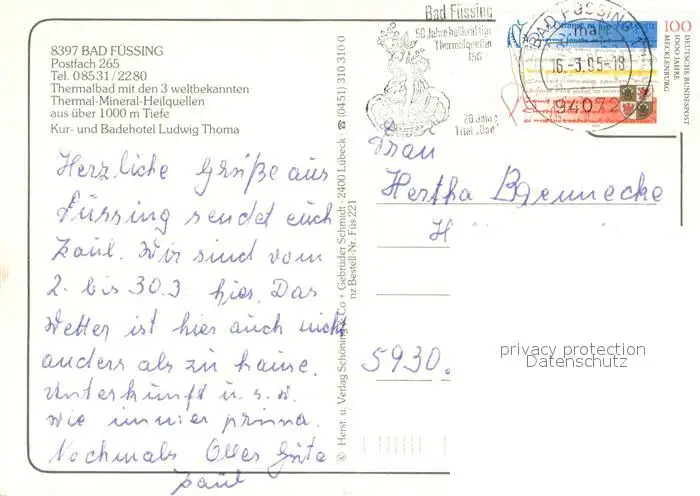 8397 BAD FÜSSING
Postfach 265
Tel. 08531/2280
Thermalbad mit den 3 weltbekannten
Thermal-Mineral-Heilquellen
aus über 1000 m Tiefe
Kur- und Badehotel Ludwig Thoma
Herzliche Grüße aus
Füssing sendet euch
Paul. Wir sind vom
2. bis 30.3 hier. Das
Wetter ist hier auch nicht
anders als zu hause.
Unterkunft u. s. w.
wie immer prima.
Nochmals Alles Gute
Paul
© Herst. u. Verlag Schöning & Co + Gebrüder Schmidt · 2400 Lübeck · ☎ (0451) 310 310 0
nz Bestell-Nr. Füs 221
Bad Füssing
50 Jahre heilkräftige
Thermalquellen
20 Jahre
BAD FÜSSING 1
16.-3.95-18
94072
100
DEUTSCHE BUNDESPOST
1000 JAHRE
MECKLENBURG
Frau
Hertha Brennecke
H
5930.
privacy protection
Datenschutz